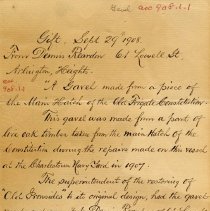 Gavel acc 908.1.1
Gift, Sept 29th 1908.
From Dennis Reardon 61 Lowell St
Arlington, Heights.
"A Gavel made from a piece
of the Main Hatch of the Old Frigate Constitution.
This gavel was made from a part of
live oak timber taken from the main Hatch of the
Constitution during the repairs made on this vessel
at the Charlestown Navy Yard in 1907.
The superintendent of the restoring of
"Old Ironsides" to its original design, had the gavel